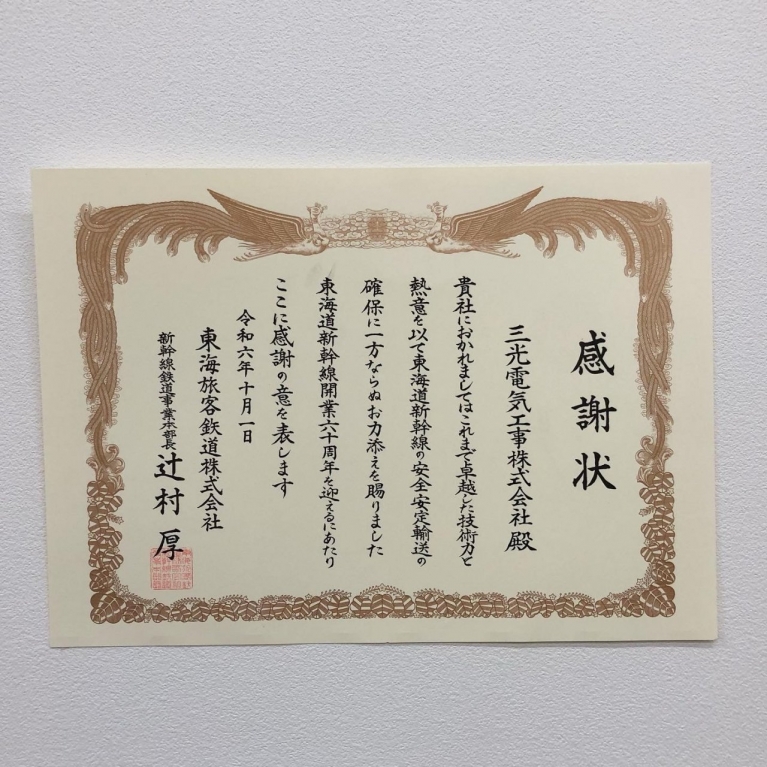 感謝状
三光電気工事株式会社殿
貴社におかれましてはこれまで卓越した技術力と
熱意を以て東海道新幹線の安全安定輸送の
確保に一方ならぬお力添えを賜りました
東海道新幹線開業六十周年を迎えるにあたり
ここに感謝の意を表します
令和六年十月一日
東海旅客鉄道株式会社
新幹線鉄道事業本部長 辻村厚